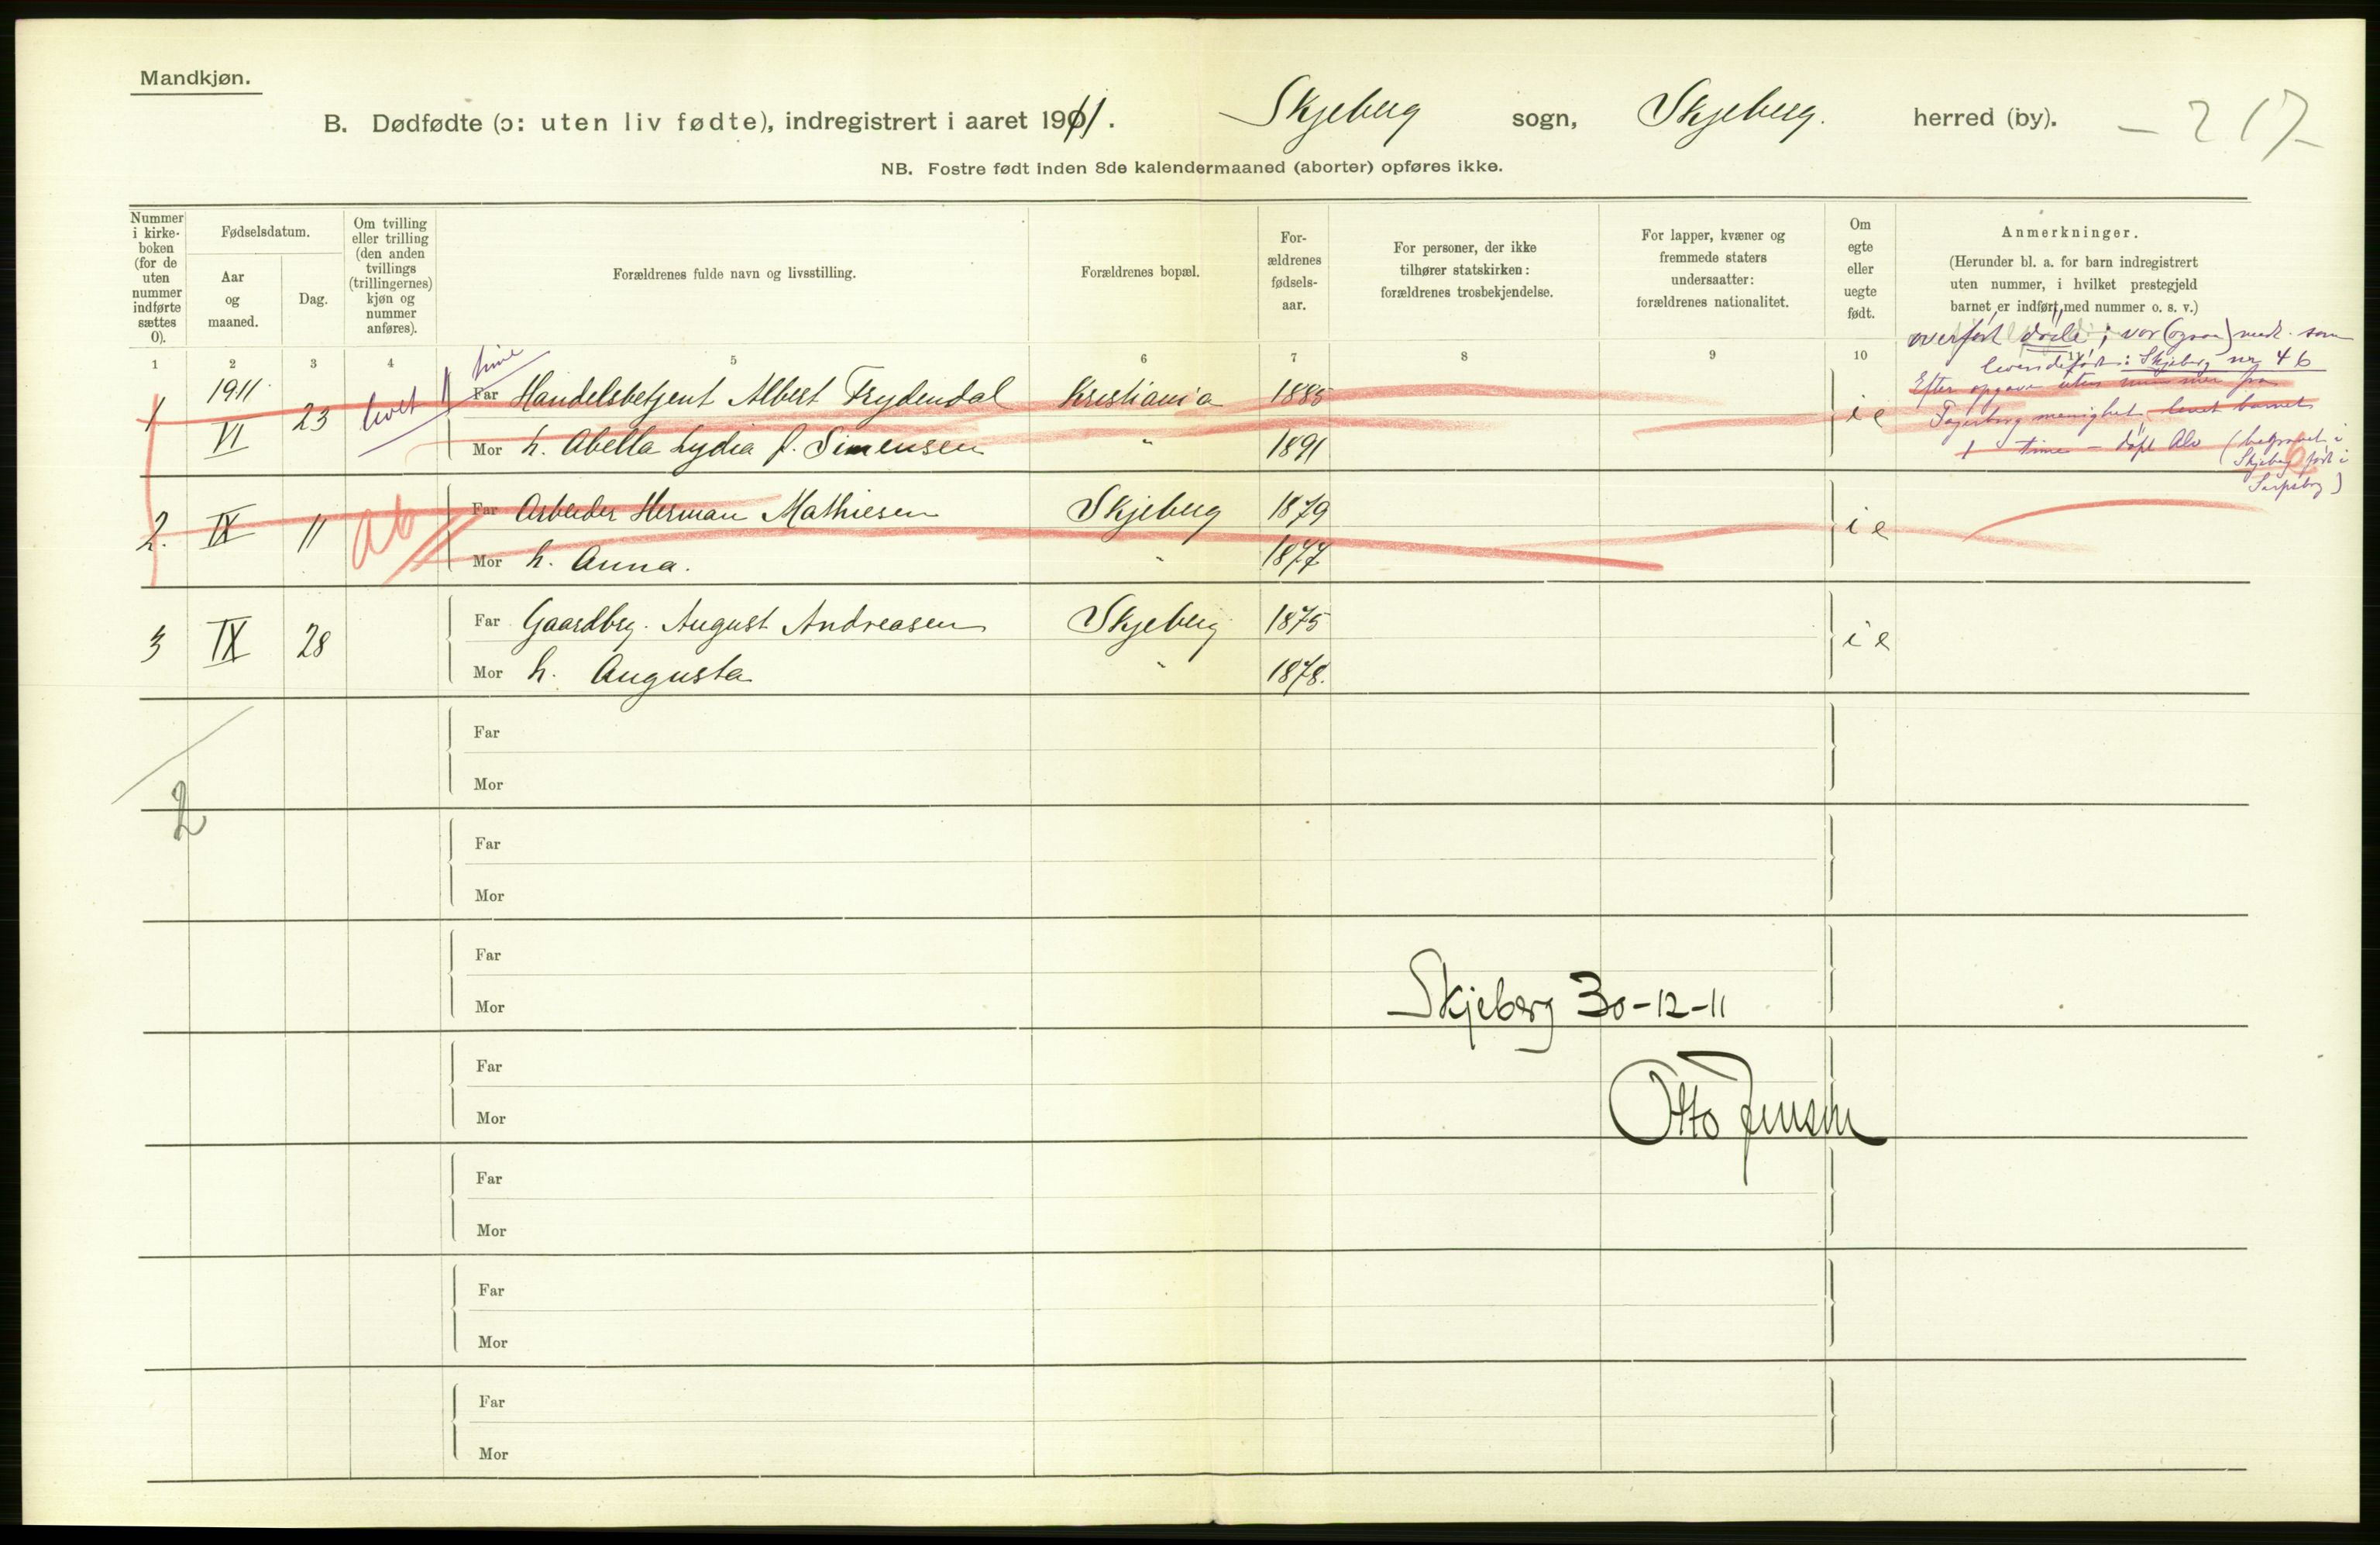 Mandkjøn.
B. Dødfødte (ɔ: uten liv fødte), indregistrert i aaret 1911. Skjeberg sogn, Skjeberg. herred (by). – 217-
NB. Fostre født inden 8de kalendermaaned (aborter) opføres ikke.
Nummer i kirke-boken (for de uten nummer indførte sættes 0).
Fødselsdatum.
Aar og maaned.
Dag.
Om tvilling eller trilling (den anden tvillings (trillingernes) kjøn og nummer anføres).
Forældrenes fulde navn og livsstilling.
Forældrenes bopæl.
For-ældrenes fødsels-aar.
For personer, der ikke tilhører statskirken: forældrenes trosbekjendelse.
For lapper, kvæner og fremmede staters undersaatter: forældrenes nationalitet.
Om egte eller uegte født.
Anmerkninger.
(Herunder bl. a. for barn indregistrert uten nummer, i hvilket prestegjeld barnet er indført med nummer o. s. v.)
overført døde; var (ogsaa) medt. som
levendefødt: Skjeberg nr 46
1 2 3 4 5 6 7 8 9 10
Efter opgave uten nummer fra
Fagerborg menighet levet barnet
1 time – døpt Alv (begravet i
Skjeberg født i
Sarpsborg)
1 1911 VI 23 levet 1 time Far Handelsbetjent Albert Frydendal Kristiania 1885 ie
Mor h. Abella Lydia f. Simensen " 1891
2. IX 11 ab Far Arbeider Herman Mathiesen Skjeberg 1879 ie
Mor h. Anna. " 1877
3 IX 28 Far Gaardbrg. August Andreasen Skjeberg 1875 ie
Mor h. Augusta " 1878.
Far
Mor
2
Far
Mor
Far
Mor
Skjeberg 30-12-11
Far
Mor
Otto Jensen
Far
Mor
Far
Mor
Far
Mor